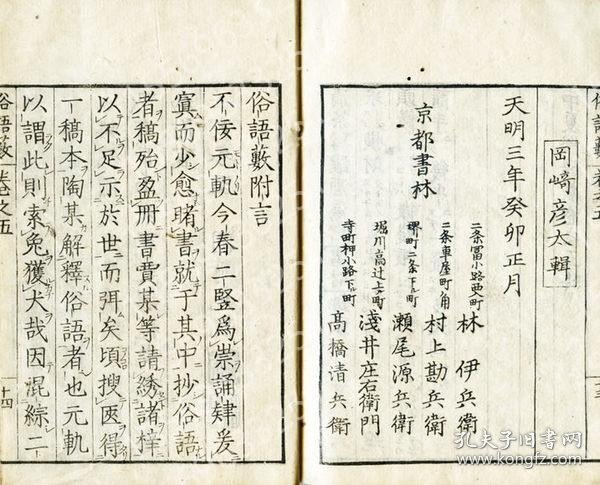 俗語藪卷之五
岡﨑彦太輯
天明三年癸卯正月
京都書林
二条冨小路西入町 林 伊兵衛
二条車屋町角 村上勘兵衛
堺町二条下ル町 瀬尾源兵衛
堀川高辻上ル町 淺井庄右衛門
寺町押小路下ル町 髙橋清兵衛
十三
俗語藪附言
不佞元軌今春二豎爲祟誦肄爰
寞而少愈睹書就于其中抄俗語
者稿殆盈冊書賈某等請綉諸梓
以不足示於世而弭矣頃搜匧得
一稿本陶某解釋俗語者也元軌
以謂此則索兔獲犬哉因混綜二
俗語藪卷之五
十四
孔夫子旧书网
www.kongfz.com